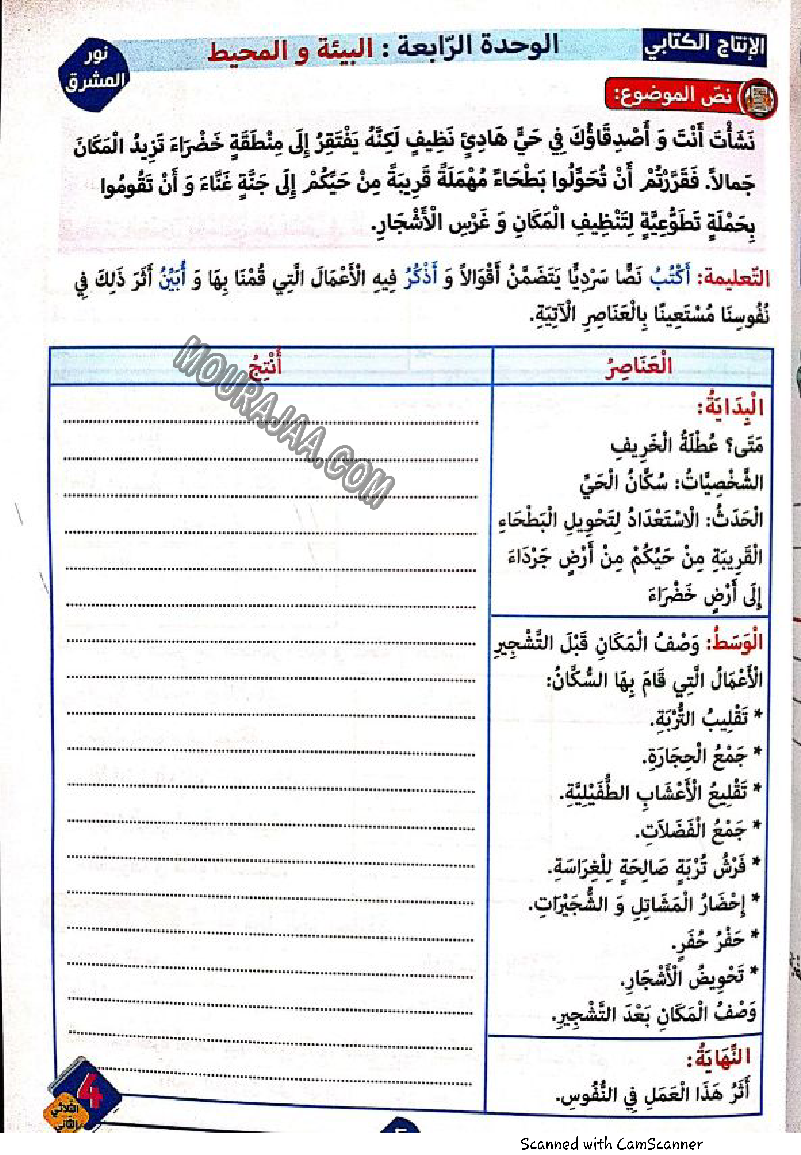 الإنتاج الكتابي
الوحدة الرّابعة : البيئة و المحيط
نور
المشرق
نصّ الموضوع:
نَشَأْتَ أَنْتَ وَ أَصْدِقَاؤُكَ فِي حَيٍّ هَادِئٍ نَظِيفٍ لَكِنَّهُ يَفْتَقِرُ إِلَى مِنْطَقَةٍ خَضْرَاءَ تَزِيدُ الْمَكَانَ
جَمالاً. فَقَرَّرْتُمْ أَنْ تُحَوِّلُوا بَطْحَاءً مُهْمَلَةً قَرِيبَةً مِنْ حَيِّكُمْ إِلَى جَنَّةٍ غَنَّاءَ وَ أَنْ تَقُومُوا
بِحَمْلَةٍ تَطَوُّعِيَّةٍ لِتَنْظِيفِ الْمَكَانِ وَ غَرْسِ الْأَشْجَارِ.
التّعليمة: أَكْتُبُ نَصًّا سَرْدِيًّا يَتَضَمَّنُ أَقْوَالاً وَ أَذْكُرُ فِيهِ الْأَعْمَالَ الَّتِي قُمْنَا بِهَا وَ أُبَيِّنُ أَثَرَ ذَلِكَ فِي
نُفُوسِنَا مُسْتَعِينًا بِالْعَنَاصِرِ الْآتِيَةِ.
الْعَنَاصِرُ
أُنْتِجُ
الْبِدَايَةُ:
مَتَى؟ عُطْلَةُ الْخَرِيفِ
الشَّخْصِيَّاتُ: سُكَّانُ الْحَيِّ
الْحَدَثُ: الْاسْتَعْدَادُ لِتَحْوِيلِ الْبَطْحَاءِ
الْقَرِيبَةِ مِنْ حَيِّكُمْ مِنْ أَرْضٍ جَرْدَاءَ
إِلَى أَرْضٍ خَضْرَاءَ
الْوَسَطُ: وَصْفُ الْمَكَانِ قَبْلَ التَّشْجِيرِ
الْأَعْمَالُ الَّتِي قَامَ بِهَا السُّكَّانُ:
* تَقْلِيبُ التُّرْبَةِ.
* جَمْعُ الْحِجَارَةِ.
* تَقْلِيعُ الْأَعْشَابِ الطُّفَيْلِيَّةِ.
* جَمْعُ الْفَضَلاَتِ.
* فَرْشُ تُرْبَةٍ صَالِحَةٍ لِلْغِرَاسَةِ.
* إِحْضَارُ الْمَشَاتِلِ وَ الشُّجَيْرَاتِ.
* حَفْرُ حُفَرٍ.
* تَحْوِيضُ الْأَشْجَارِ.
وَصْفُ الْمَكَانِ بَعْدَ التَّشْجِيرِ.
النِّهَايَةُ:
أَثَرُ هَذَا الْعَمَلِ فِي النُّفُوسِ.
MOURAJAA.COM
4
الثلاثي
الثاني
Scanned with CamScanner